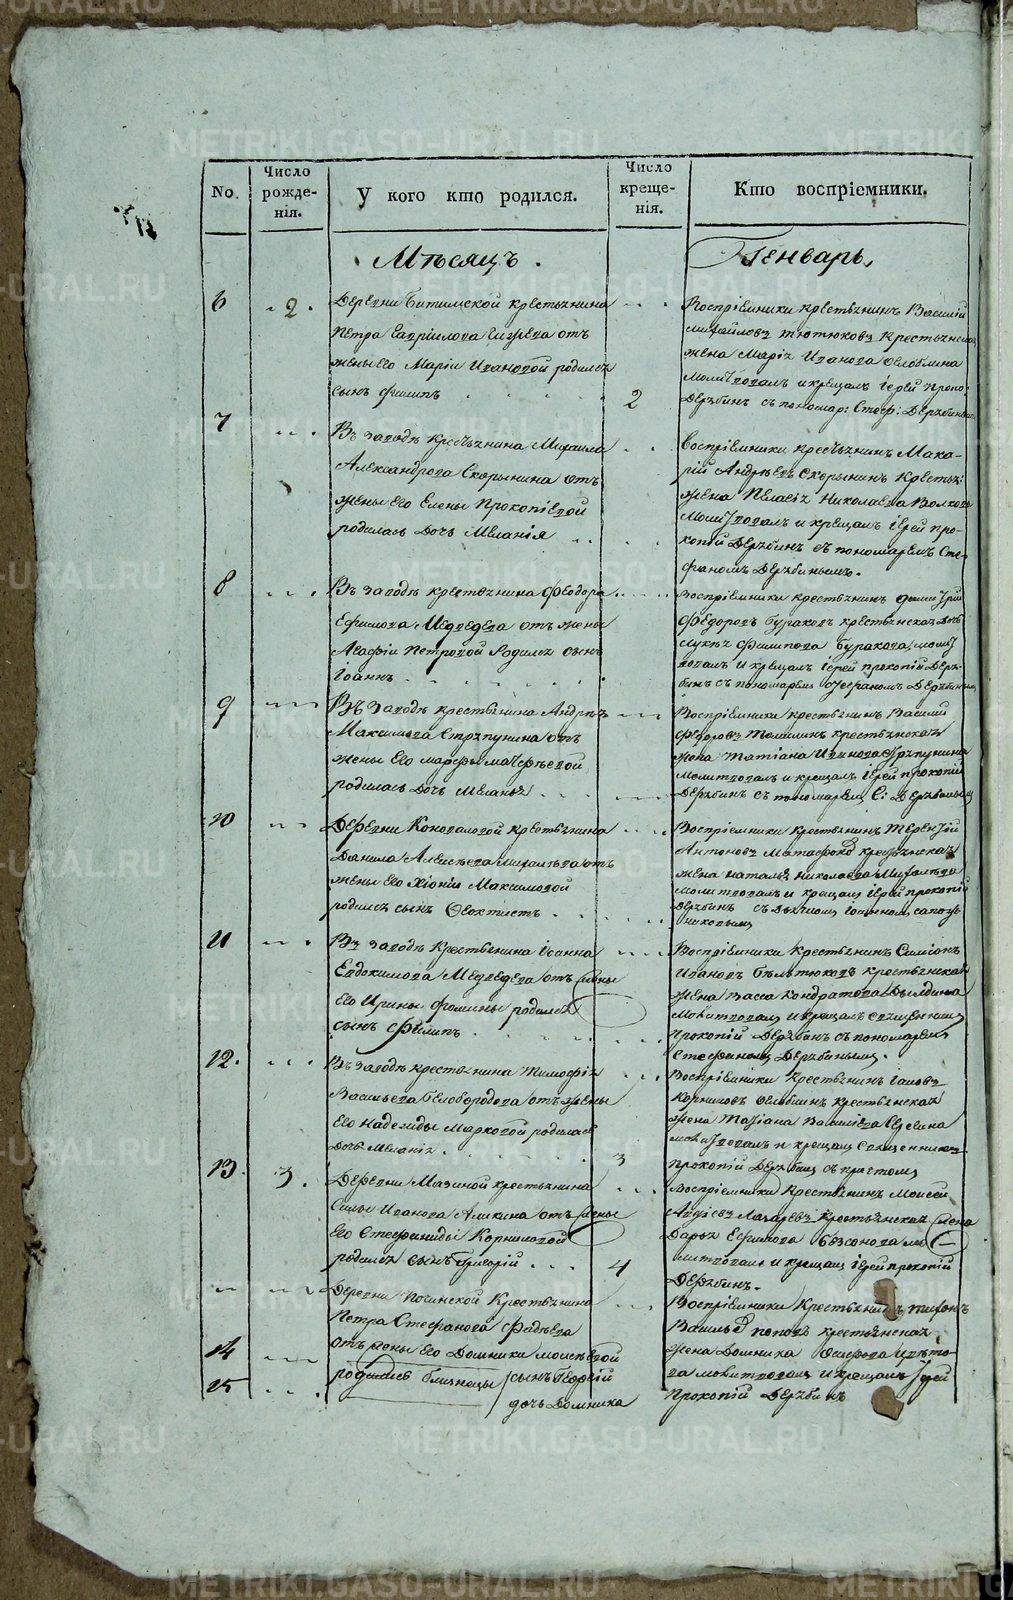 No.
Число рожде-нія.
У кого кто родился.
Число креще-нія.
Кто воспріемники.
Мѣсяцъ.
Генварь.
6
2.
Деревни Битимской крестьянина
Петра Гавріилова отъ
жены его Маріи Ивановой родился
сынъ Филипъ
2
Воспріемники крестьянинъ Василій
Михайловъ Тютюковъ крестьянская
жена Марія Иванова
молитвовалъ и крещалъ іерей Проко:
Дерябинъ съ пономар: Стеф: Дерябинымъ
7
Въ заводѣ крестьянина Михаила
Александрова Скорынина отъ
жены его Елены Прокопіевой
родилась дочь Меланія
Воспріемники крестьянинъ Мака-
рій Андреевъ Скорынинъ крестьян:
жена Пелагія Николаева Волкова
молитвовалъ и крещалъ іерей Про-
копій Дерябинъ съ пономаремъ Сте-
фаномъ Дерябинымъ.
8
Въ заводѣ крестьянина Феодора
Ефимова Медведева отъ жены
Агафіи Петровой родился сынъ
Іоаннъ
Воспріемники крестьянинъ Димитрій
Федоровъ Бураковъ крестьянская дочь
Филипова Буракова, молит
вовалъ и крещалъ іерей Прокопій Деря-
бинъ съ пономаремъ Стефаномъ Дерябинымъ
9
Въ заводѣ крестьянина Андрея
Максимова Стряпунина отъ
жены его Марфы Матфѣевой
родилась дочь Меланія
Воспріемники крестьянинъ Василій
Федоровъ крестьянская
жена Татіана Иванова Стряпунина
молитвовалъ и крещалъ іерей Прокопій
Дерябинъ съ пономаремъ С: Дерябинымъ
10
Деревни Коноваловой крестьянина
Данила Алексѣева Михалева отъ
жены его Хіоніи Максимовой
родился сынъ Феоктистъ
Воспріемники крестьянинъ Терентій
Антоновъ крестьянская
жена Наталья Николаева Михалева
молитвовалъ и крещалъ іерей Прокопій
Дерябинъ съ дьячкомъ Іоанномъ Сапож-
никовымъ
11
Въ заводѣ крестьянина Іоанна
Евдокимова Медведева отъ жены
его Ирины Фомины родился
сынъ Филипъ
Воспріемники крестьянинъ Симіонъ
Ивановъ крестьянская
жена Васса Кондратова
молитвовалъ и крещалъ священникъ
Прокопій Дерябинъ съ пономаремъ
Стефаномъ Дерябинымъ.
12.
Въ заводѣ крестьянина Тимофія
Васильева Белобородова отъ жены
его Надежды Марковой родилась
дочь Меланія
3
Воспріемники крестьянинъ Іаковъ
Корниловъ крестьянская
жена Татіана
молитвовалъ и крещалъ священникъ
Прокопій Дерябинъ съ причтомъ
13.
3.
Деревни Мазиной крестьянина
Силы Иванова Аликина отъ жены
его Стефаниды Корниловой
родился сынъ Григорій
4
Воспріемники крестьянинъ Моисей
Лазаревъ крестьянская жена
Дарья Ефимова Безсонова мо-
литвовалъ и крещалъ іерей Прокопій
Дерябинъ.
Деревни Починской крестьянина
Петра Стефанова Фадѣева
14
отъ жены его Домники Моисѣевой
15
родились близнецы сынъ Георгій
дочь Домника
Воспріемники крестьянинъ Тихонъ
Васильевъ Поповъ крестьянская
жена Домника
молитвовалъ и крещалъ іерей
Прокопій Дерябинъ
METRIKI.GASO-URAL.RU